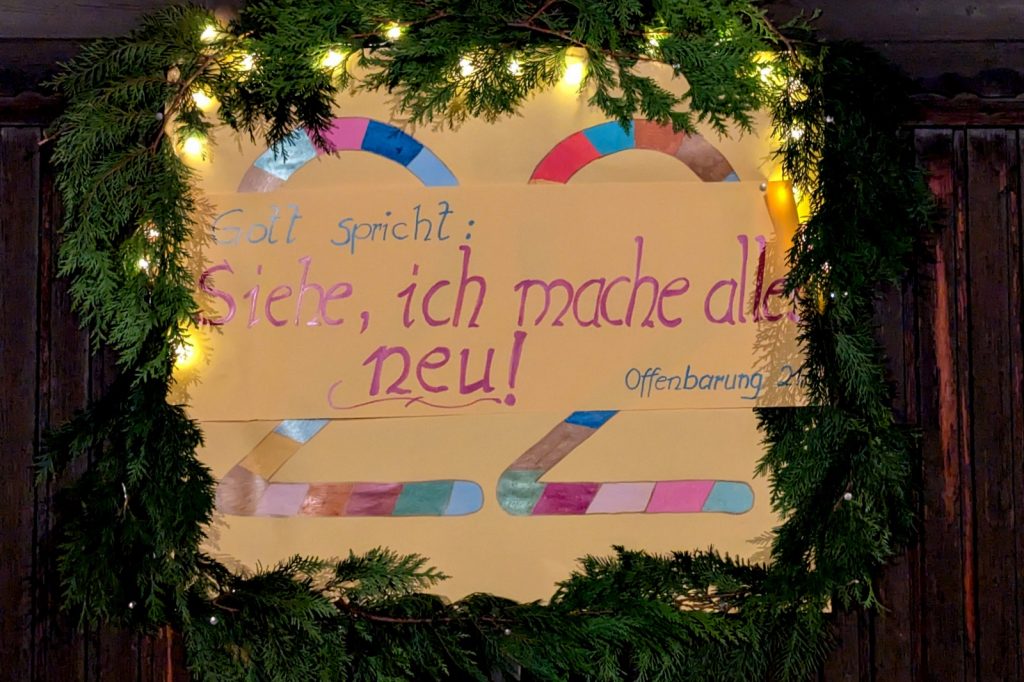 22
Gott spricht:
Siehe, ich mache alles
neu!
Offenbarung 21